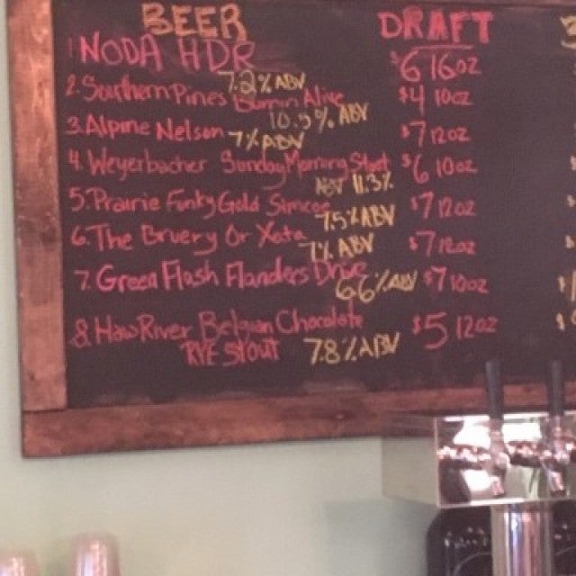 BEER DRAFT
1 NODA HDR $6 16oz
7.2% ABV
2. Southern Pines Burnin Alive $4 10oz
10.5% ABV
3. Alpine Nelson $7 12oz
7% ABV
4. Weyerbacher Sunday Morning Stout $6 10oz
ABV 11.3%
5. Prairie Funky Gold Simcoe $7 12oz
7.5% ABV
6. The Bruery Or Xata $7 12oz
7% ABV
7. Green Flash Flanders Drive $7 10oz
6.6% ABV
8 Haw River Belgian Chocolate $5 12oz
RYE STOUT 7.8% ABV